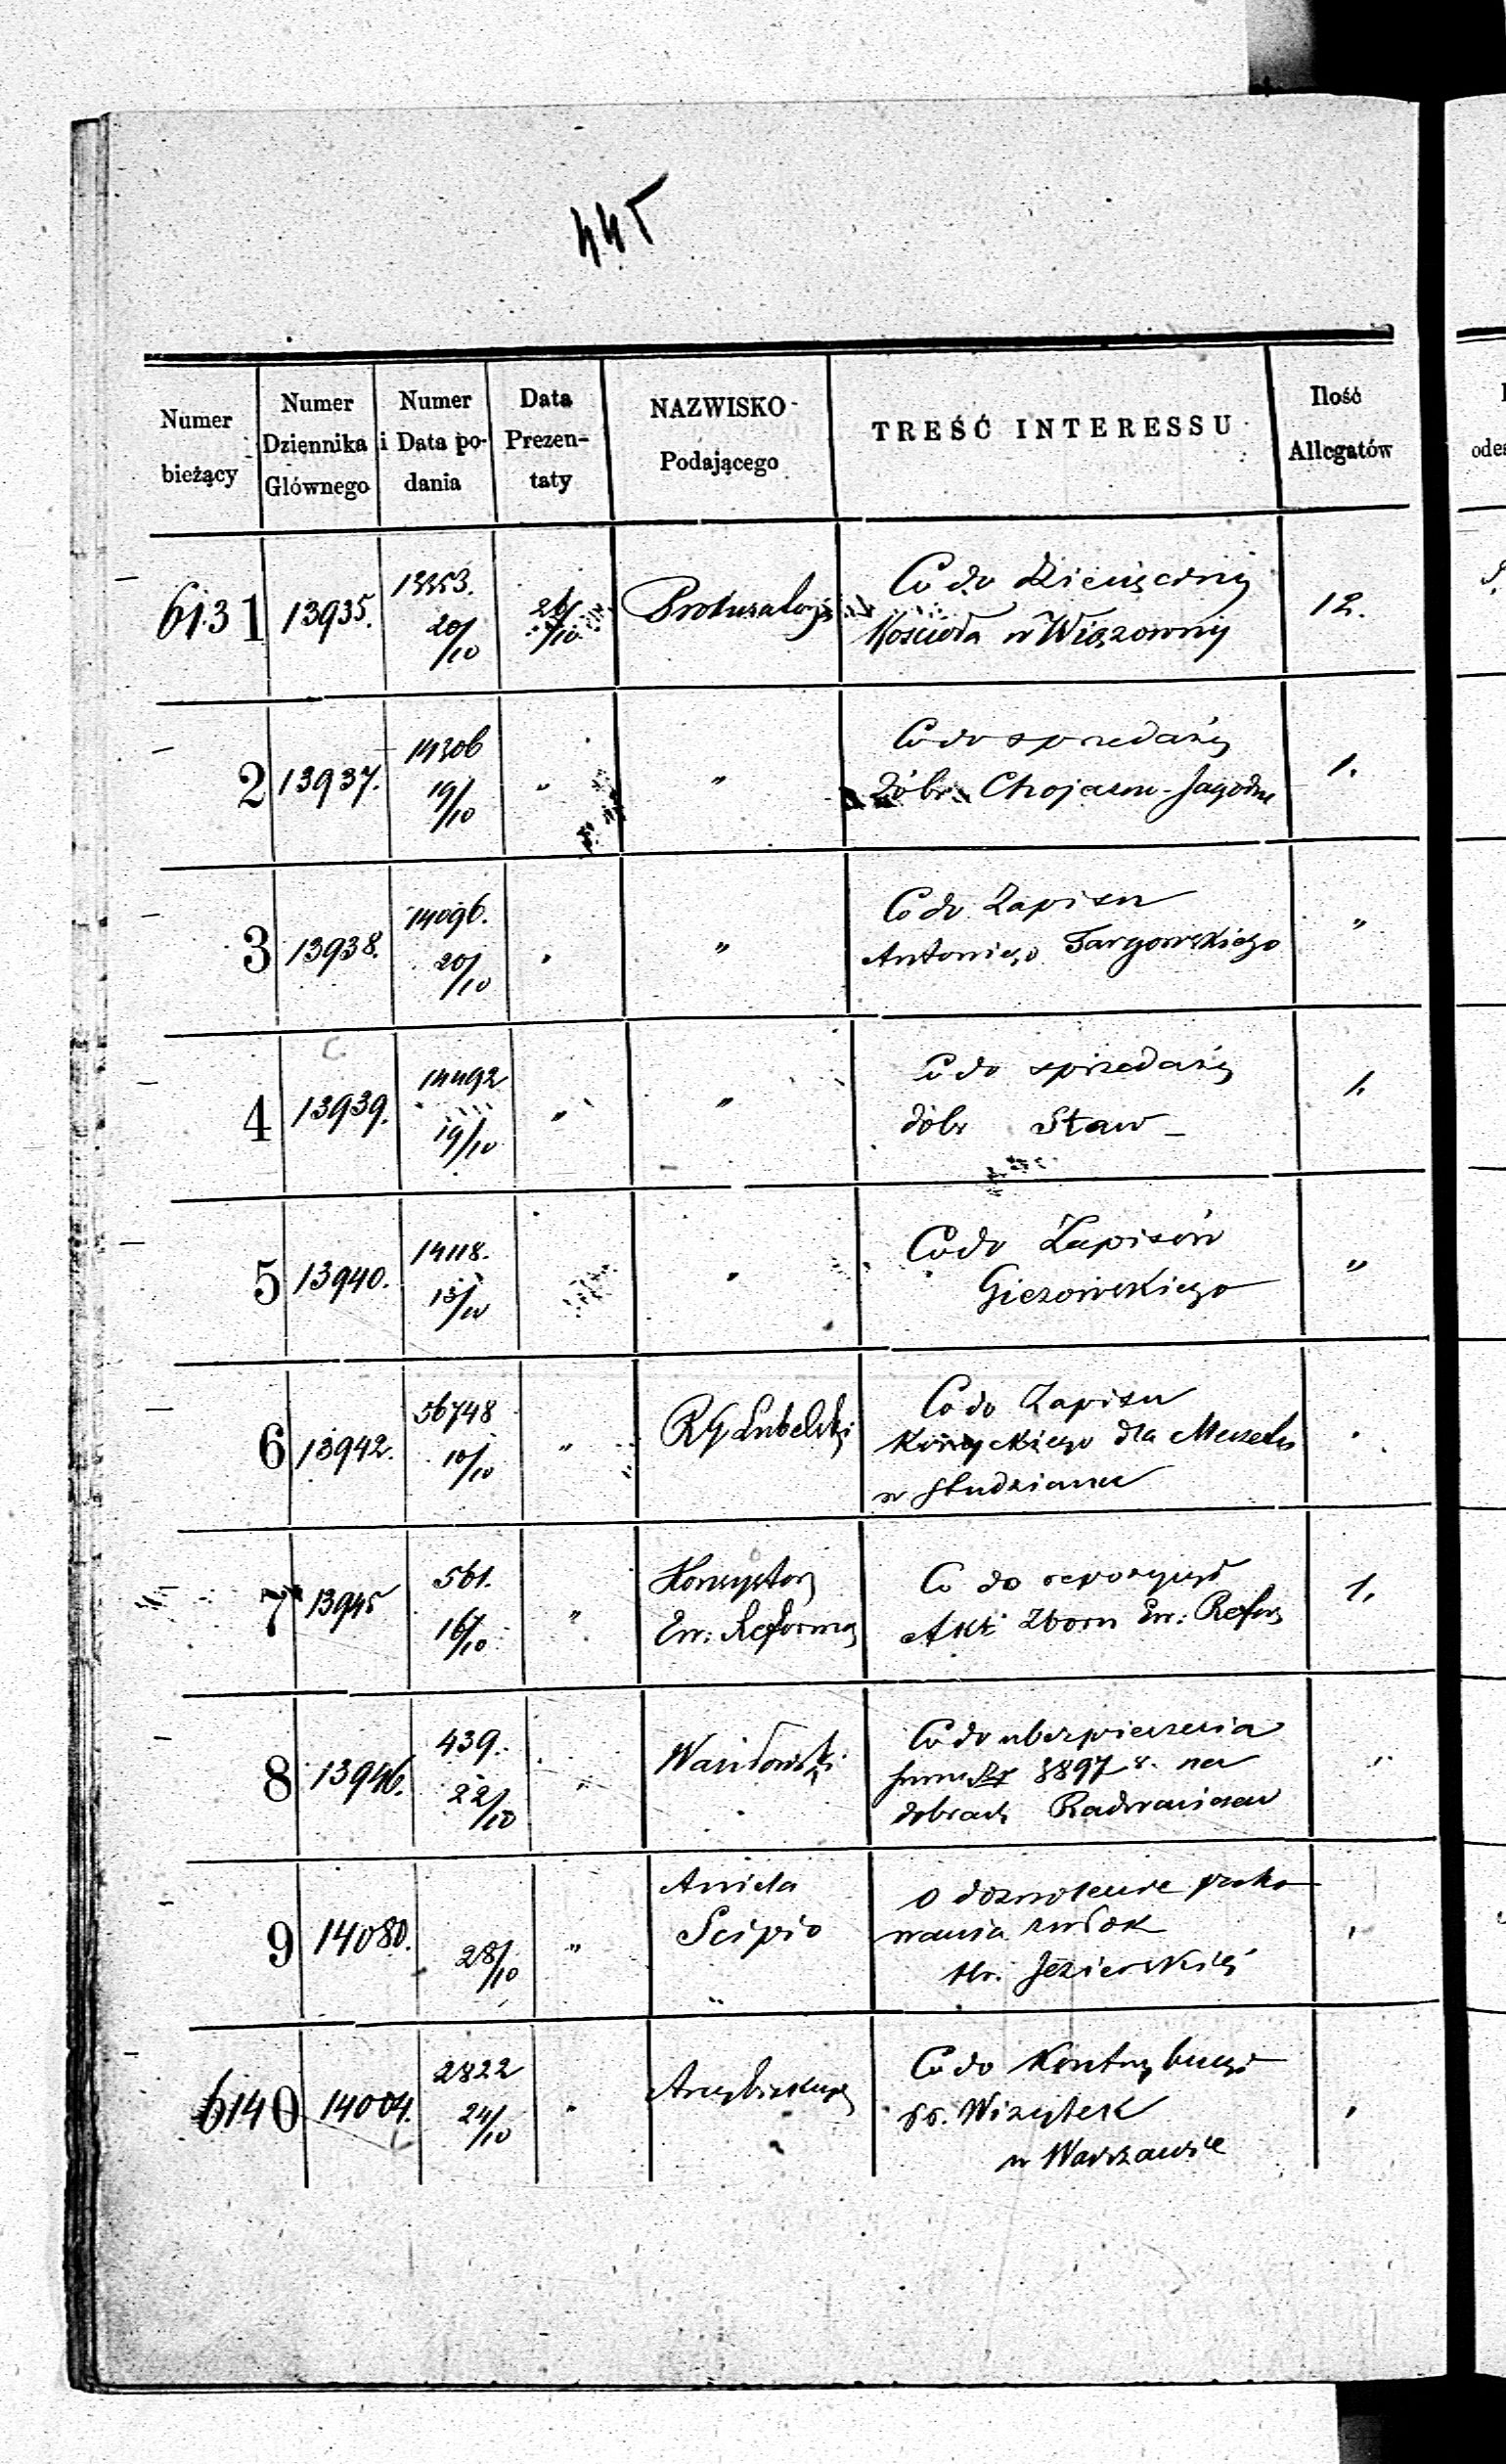 445
Numer bieżący
Numer Dziennika Głównego
Numer i Data podania
Data Prezentaty
NAZWISKO Podającego
TREŚĆ INTERESSU
Ilość Allegatów
6131 13935. 13353. 20/10 26/10 Prokurator Co do
Kościoła w Wiązowny 12.
2 13937. 14306 19/10 " " Co do sprzedaży
dóbr Chojeczno-Jagodne 1.
3 13938. 14096. 20/10 " " Co do Zapisu
Antoniego Targowskiego "
4 13939. 14492 19/10 " " Co do sprzedaży
dóbr Staw 1.
5 13940. 14118. 13/10 " Co do Zapisów
Giezowskiego "
6 13942. 56748 10/10 " RG Lubelski Co do Zapisu
dla
w
7 13945 561. 16/10 " Konsystorz
Ew: Reformo
Co do
Akt Zboru Ew: Refor 1.
8 13946. 439. 22/10 " Co do ubezpieczenia
3897 na
dobrach "
9 14080. 28/10 " Aniela
Scipio
o dozwolenie pocho
wania zwłok
Hr. Jezierskiéj
6140 14004. 2822 24/10 " Arcybiskup Co do Kontrybucyi
SS. Wizytek
w Warszawie